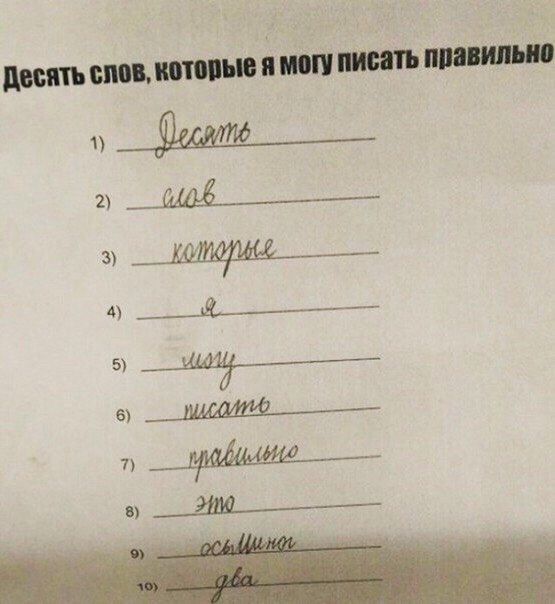 Десять слов, которые я могу писать правильно
1) Десять
2) слов
3) которые
4) я
5) могу
6) писать
7) правильно
8) это
9) осьминог
10) два